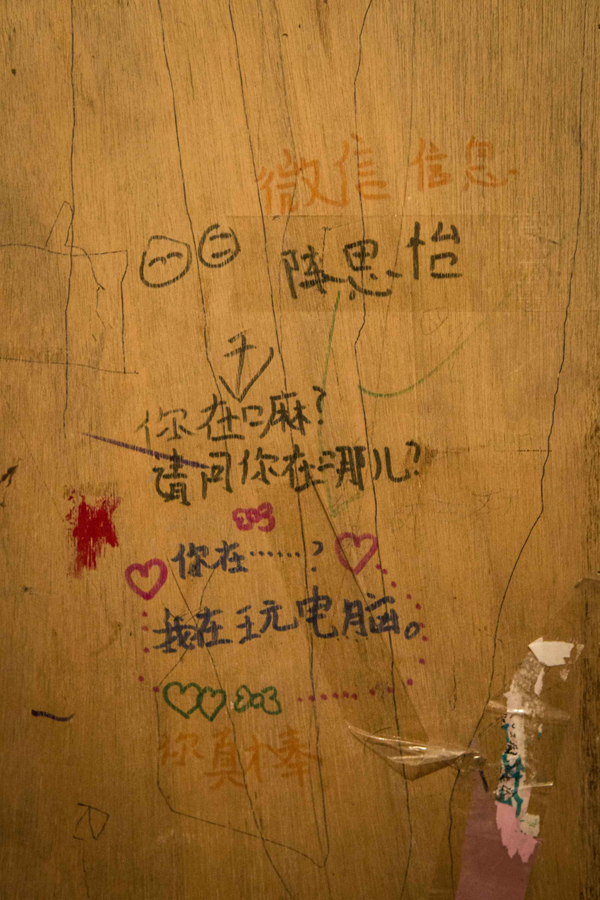 微信 信息
陈思怡
你在嘛?
请问你在哪儿?
你在……?
我在玩电脑。
你真棒